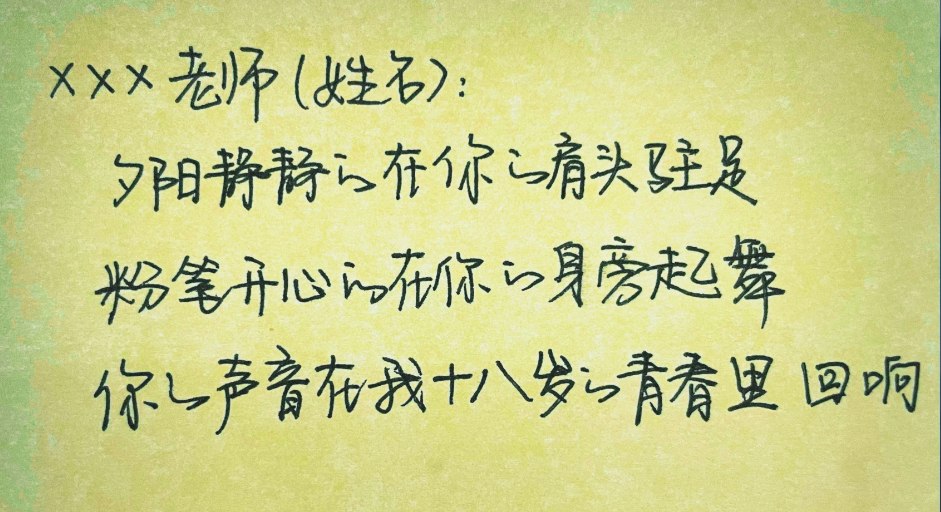 ×××老师(姓名):
夕阳静静的在你的肩头驻足
粉笔开心的在你的身旁起舞
你的声音在我十八岁的青春里回响